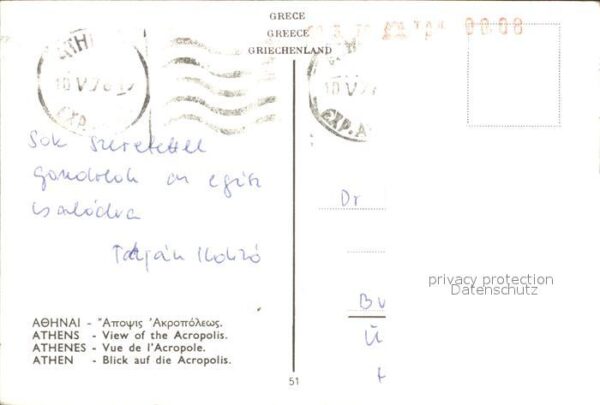 GRECE
GREECE
GRIECHENLAND
10 V 7
EXP.
10 V 7
EXP. A
Sok szeretettel
gondolok az egész
családra
Dr
BU
Ü
privacy protection
Datenschutz
ΑΘΗΝΑΙ - Ἄποψις Ἀκροπόλεως.
ATHENS - View of the Acropolis.
ATHENES - Vue de l'Acropole.
ATHEN - Blick auf die Acropolis.
51